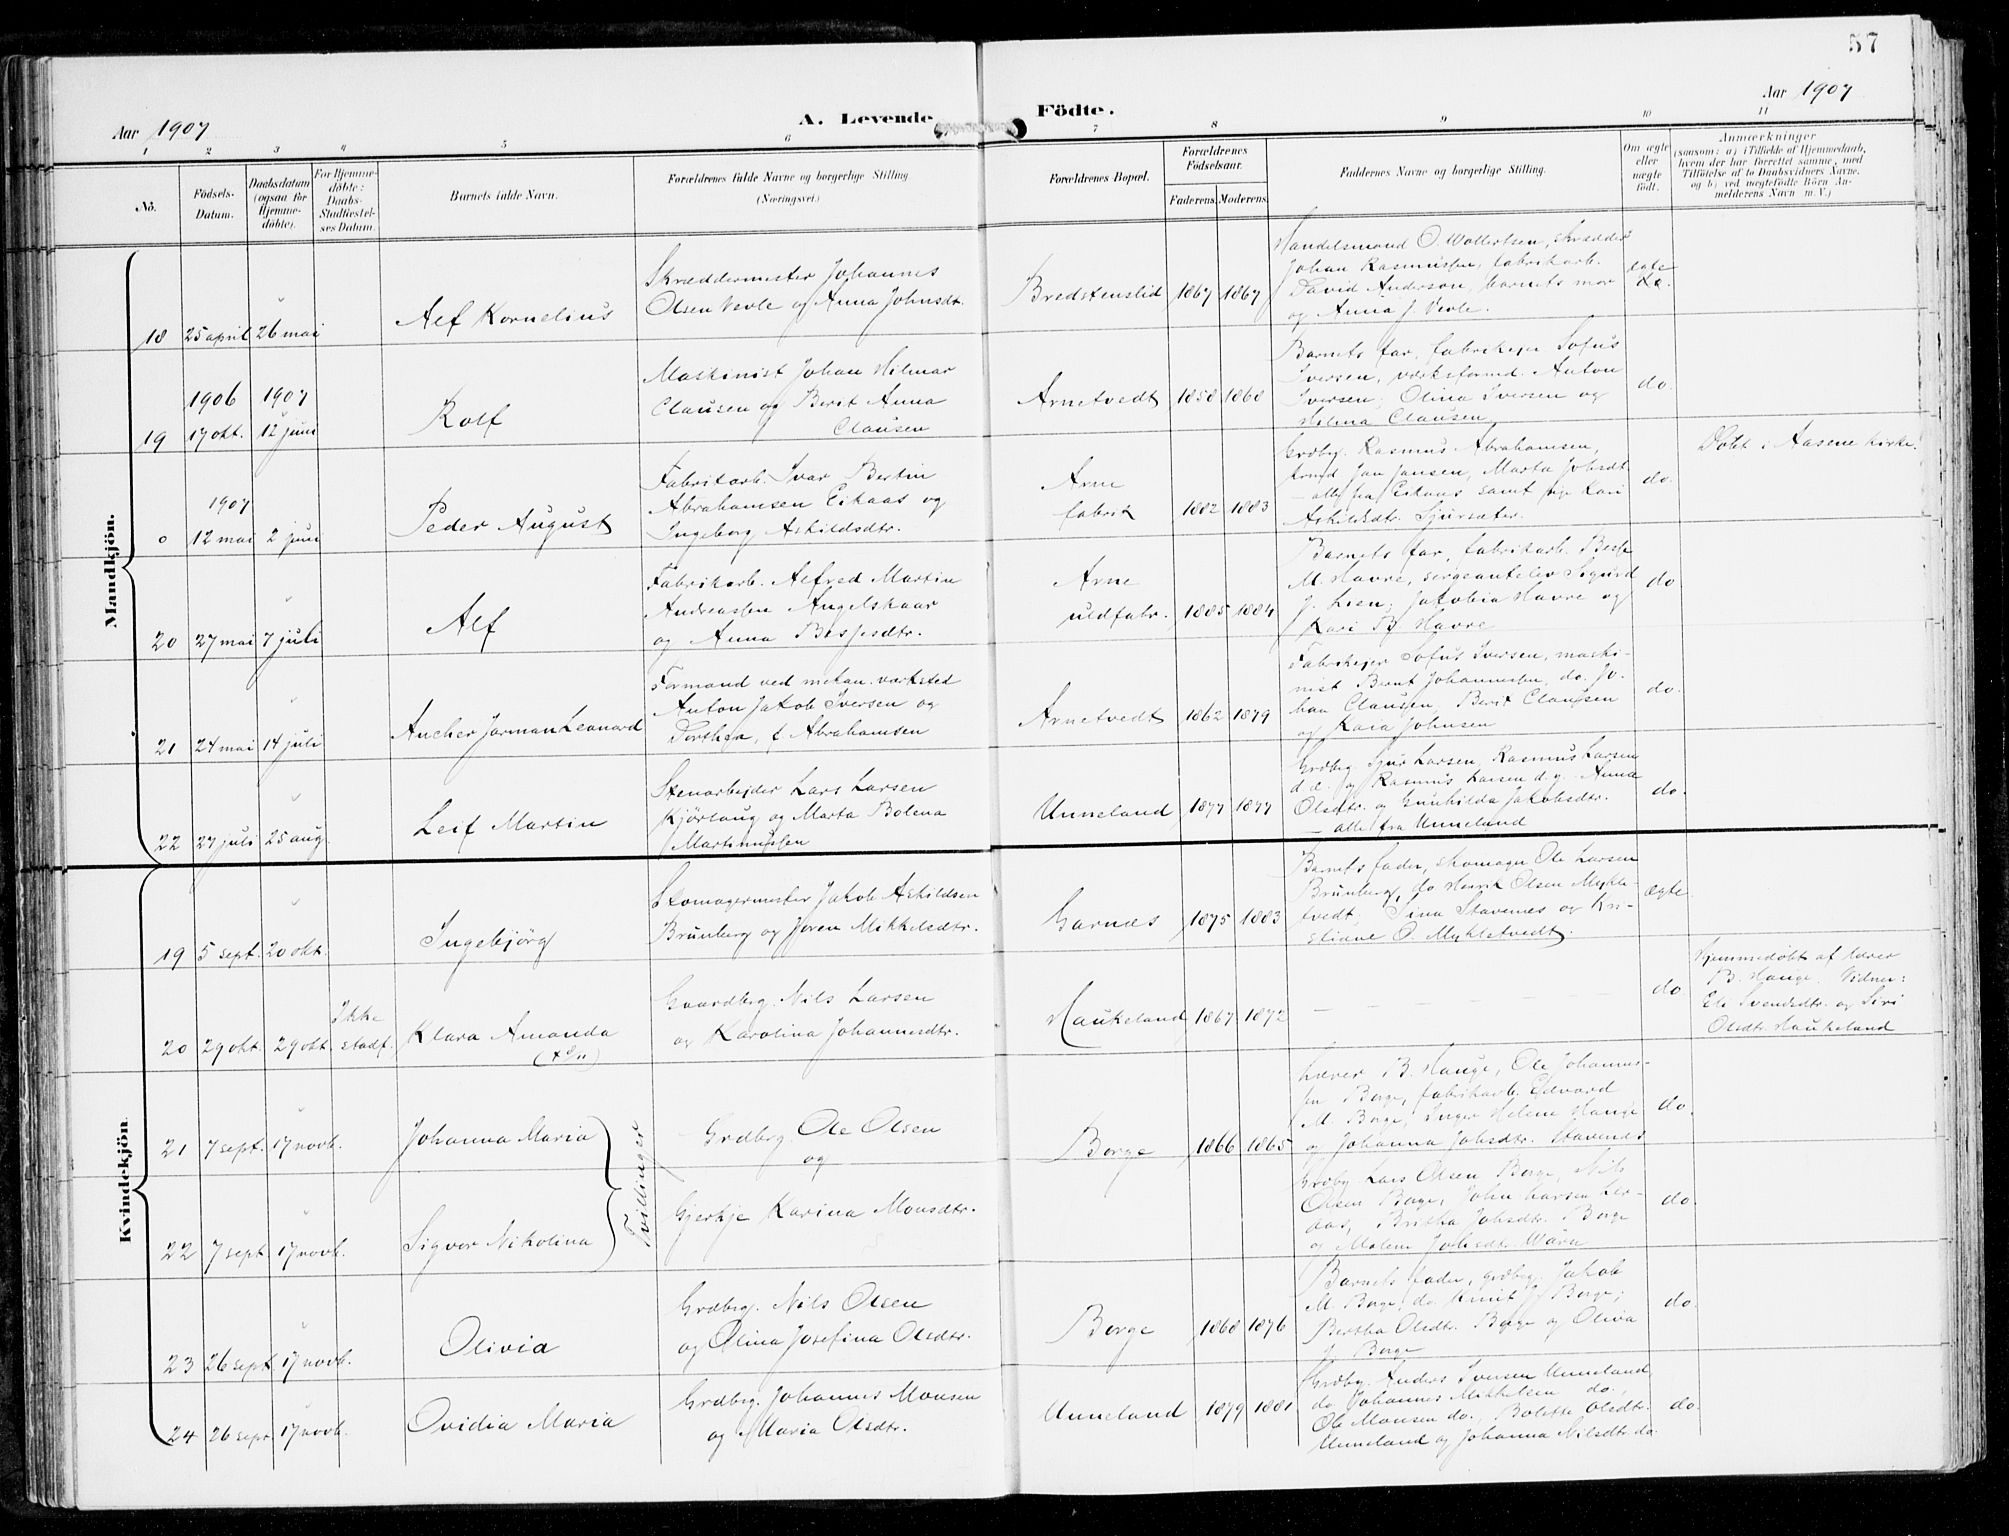 57
Aar 1907
A. Levende Födte.
Aar 1907
1 2 3 4 5 6 7 8 9 10 11
No.
Födsels-Datum.
Daabsdatum (ogsaa for Hjemme-döbte).
For Hjemme-döbte: Daabs-Stadfæstel-ses Datum.
Barnets fulde Navn.
Forældrenes fulde Navne og borgerlige Stilling (Næringsvei.)
Forældrenes Bopæl.
Forældrenes Födselsaar.
Faderens. Moderens.
Faddernes Navne og borgerlige Stilling.
Om ægte eller uægte födt.
Anmærkninger
(saasom: a) i Tilfælde af Hjemmedaab, hvem der har forrettet samme, med Tilföielse af to Daabsvidners Navne, og b) ved uægtefödte Börn Anmelderens Navn m. V.)
Mandkjön.
18 25 april 26 mai
Alf Kornelius
Skræddermester Johannes
Olsen Vevle og Anna Johnsdtr.
Bredstenslid 1867 1867
Handelsmand O. Wollertsen, Skrædder
Johan Rasmussen, fabrikarb.
David Anderson, barnets mor
og Anna J. Vevle.
ægte
19 1906 17 okt. 1907 12 juni
Rolf
Maskinist Johan Hilmar
Clausen og Berit Anna
Clausen
Arnetvedt 1858 1860
Barnets far, fabrikejer Sofus
Iversen, værksformd. Anton
Iversen, Olina Iversen og
Helma Clausen
do.
0 1907 12 mai 2 juni
Peder August
Fabrikarb. Ivar Bertin
Abrahamsen Eikaas og
Ingeborg Askildsdtr.
Arne
fabrik 1882 1883
Grdbrg. Rasmus Abrahamsen,
Arnd Jan Jansen, Marta Johsdt.
– alle fra Eikaas samt pige Kari
Askildsdtr. Sjursæter.
do.
Döbt i Aasene kirke.
20 27 mai 7 juli
Alf
Fabrikarb. Alfred Martin
Andreassen Angelskaar
og Anna Bessesdtr.
Arne
uldfabr. 1885 1884
Barnets far, fabrikarb. Besse
M. Havre, sergeantelev Sigurd
J. Lien, Jakobia Havre og
Kari B. Havre
do
21 24 mai 14 juli
Ancher Jarman Leonard
Formand ved mekan. værksted
Anton Jakob Iversen og
Dorthea, f. Abrahamsen
Arnetvedt 1862 1879
Fabrikejer Sofus Iversen, maski-
nist Bernt Johannessen, do. Jo-
han Clausen, Berit Clausen
og Kaia Johnsen
do.
22 27 juli 25 aug.
Leif Martin
Stenarbejder Lars Larsen
Kjörlaug og Marta Bolena
Martinussen
Unneland 1877 1877
Grdbrg. Sjur Larsen, Rasmus Larsen
d.e. og Rasmus Larsen d.y. Anna
Olsdtr. og Gunhilda Jakobsdtr.
– alle fra Unneland
do.
Kvindekjön
19 5 sept. 20 okt.
Ingebjörg
Skomagermester Jakob Askildsen
Brunberg og Jören Mikkelsdtr.
Garnæs 1875 1883
Barnets fader, skomager Ole Larsen
Brunberg, do Henrik Olsen Mykle-
tvedt, Sina Stavenes og Kri-
stiane O. Mykletvedt.
ægte
20 29 okt. 29 okt. Ikke stadf.
Klara Amanda
Gaardbrg. Nils Larsen
og Karolina Johannesdtr.
Haukeland 1867 1872
– – – –
do
Hjemmedöbt af lærer
B. Hauge. Vidner:
Eli Svendsdtr. og Siri
Olsdtr. Haukeland
21 7 sept. 17 novb.
Johanna Maria
Tvillinger
Grdbrg. Ole Olsen
og
Gjertje Karina Monsdtr.
Borge 1866 1865
Lærer B. Hauge, Ole Johannes-
sen Borge, fabrikarb. Edvard
M. Borge, Inger Helene Hauge
og Johanna Johsdtr. Stavenes
do.
22 7 sept. 17 novb.
Sigvor Nikolina
Grdbrg. Lars Olsen Borge, Nils
Olsen Borge, John Larsen Ler-
aas, Britha Johsdtr. Borge
og Malene Johsdtr.
do.
23 26 sept. 17 novb.
Olivia
Grdbrg. Nils Olsen
og Olina Josefina Olsdtr.
Borge 1868 1876
Barnets fader, grdbrg. Jakob
M. Borge, do. Knut J. Borge;
Bertha Olsdtr. Borge og Oliva
J. Borge
do.
24 26 sept. 17 novb.
Ovidia Maria
Grdbrg. Johannes Monsen
og Maria Olsdtr.
Unneland 1879 1881
Grdbrg. Anders Iversen Unneland
do Johannes Mikkelsen do.,
Ole Monsen do., Bolette Olsdtr.
Unneland og Johanna Nilsdtr. do.
do.